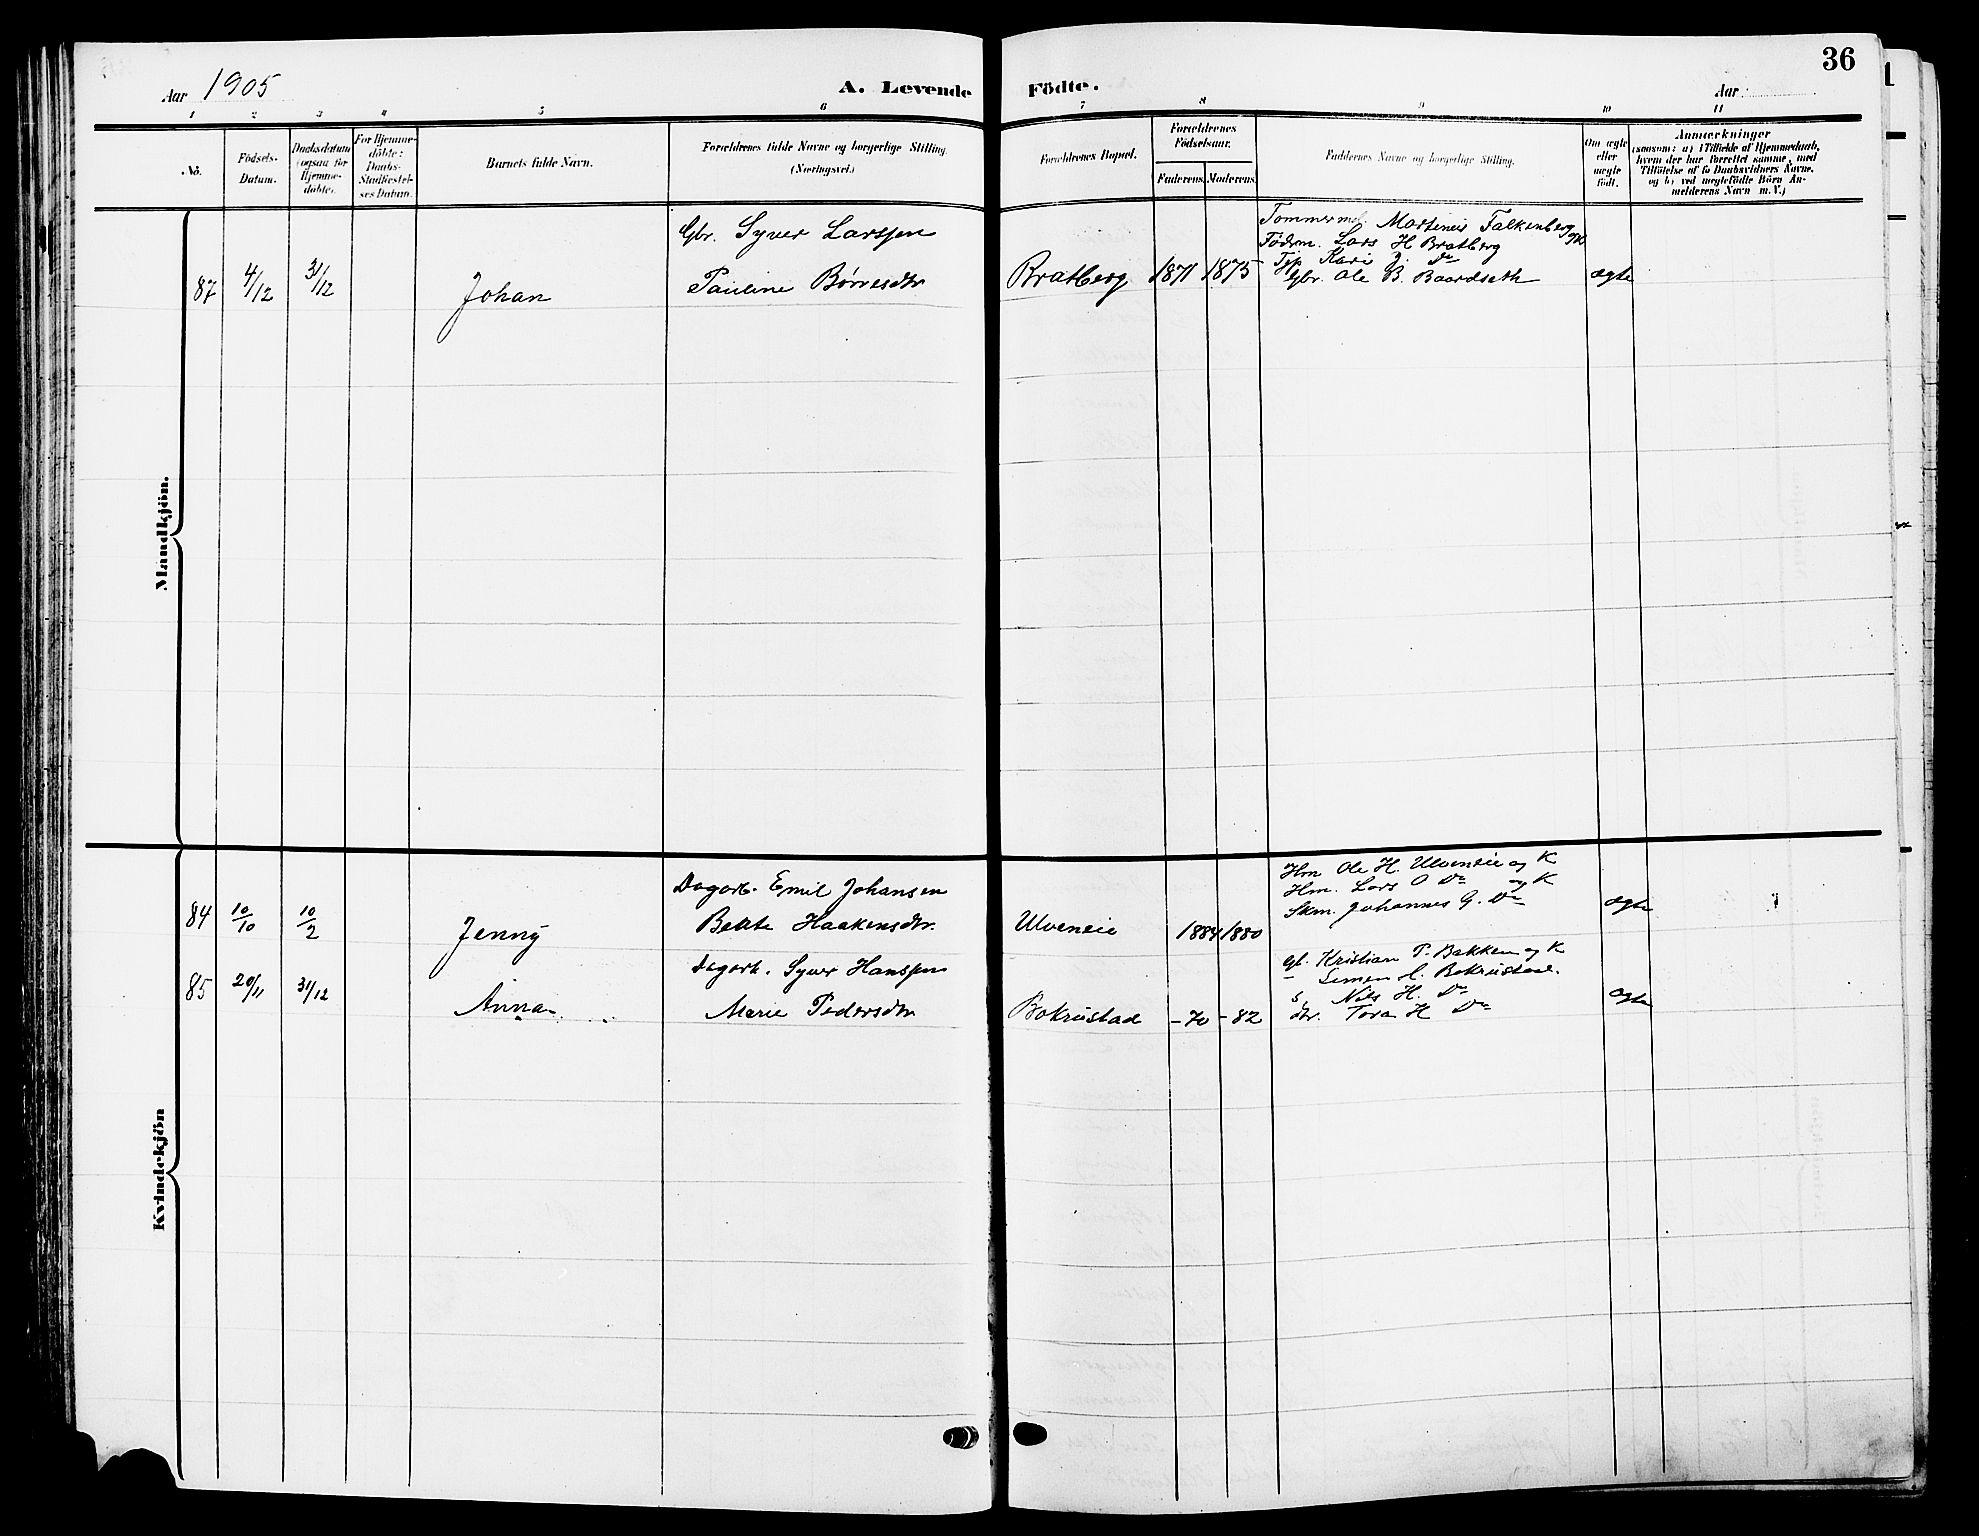 36
Aar 1905
A. Levende Födte.
Aar
1 2 3 4 5 6 7 8 9 10 11
No.
Födsels-
Datum.
Daabsdatum
(ogsaa for
Hjemme-
döbte).
For Hjemme-
döbte:
Daabs-
Stadfæstel-
ses Datum.
Barnets fulde Navn.
Forældrenes fulde Navne og borgerlige Stilling.
(Næringsvei.)
Forældrenes Bopæl.
Forældrenes
Födselsaar.
Faderens. Moderens.
Faddernes Navne og borgerlige Stilling.
Om ægte
eller
uægte
født.
Anmærkninger
(saasom: a) i Tilfælde af Hjemmedaab,
hvem der har forrettet samme, med
Tilföielse af to Daabsvidners Navne.
og b) ved uægtefödte Börn An-
melderens Navn m. V.)
Mandkjön.
87 4/12 31/12 Johan
Gbr. Syver Larssen
Pauline Børresdtr
Bratberg 1871 1875
Tommermd. Martenius Falkenberg
Födrm. Lars H Bratberg
Kari J. Do
Gbr. Ole B. Baardseth
ægte
Kvindekjön
84 10/10 10/2 Jenny
Dagarb. Emil Johansen
Beate Haakensdtr.
Ulveneie 1884 1880
Hm Ole H. Ulveneie og K
Hm. Lars O Do og K
Skm. Johannes G. Do
ægte
85 20/11 31/12 Anna
Dagarb. Syver Hanssen
Marie Pedersdtr
Bokrustad -70 -82
gb. Kristian P. Bakken og K
- Simen H. Bokrustad.
s. Nils H. Do
dtr. Tora H Do
ægte